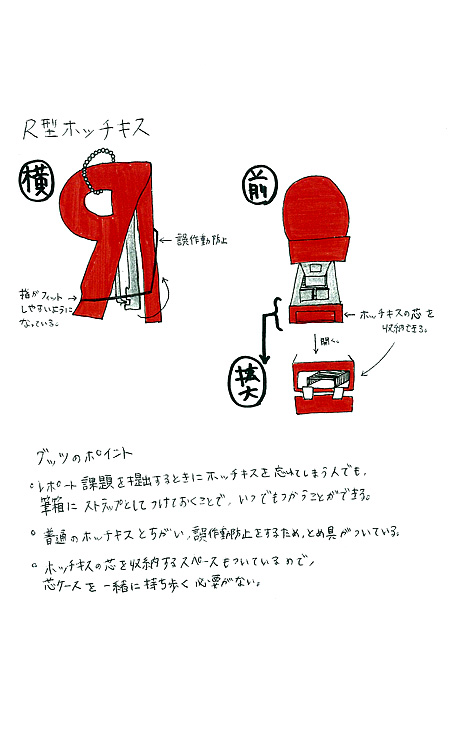 R型ホッチキス
横
前
誤作動防止
指がフィット
しやすいように
なっている。
ホッチキスの芯を
収納できる。
開く
拡大
グッツのポイント
°レポート課題を提出するときにホッチキスを忘れてしまう人でも、
筆箱にストラップとしてつけておくことで、いつでもつかうことができる。
°普通のホッチキスとちがい、誤作動防止をするため、とめ具がついている。
°ホッチキスの芯を収納するスペースもついているので、
芯ケースを一緒に持ち歩く必要がない。